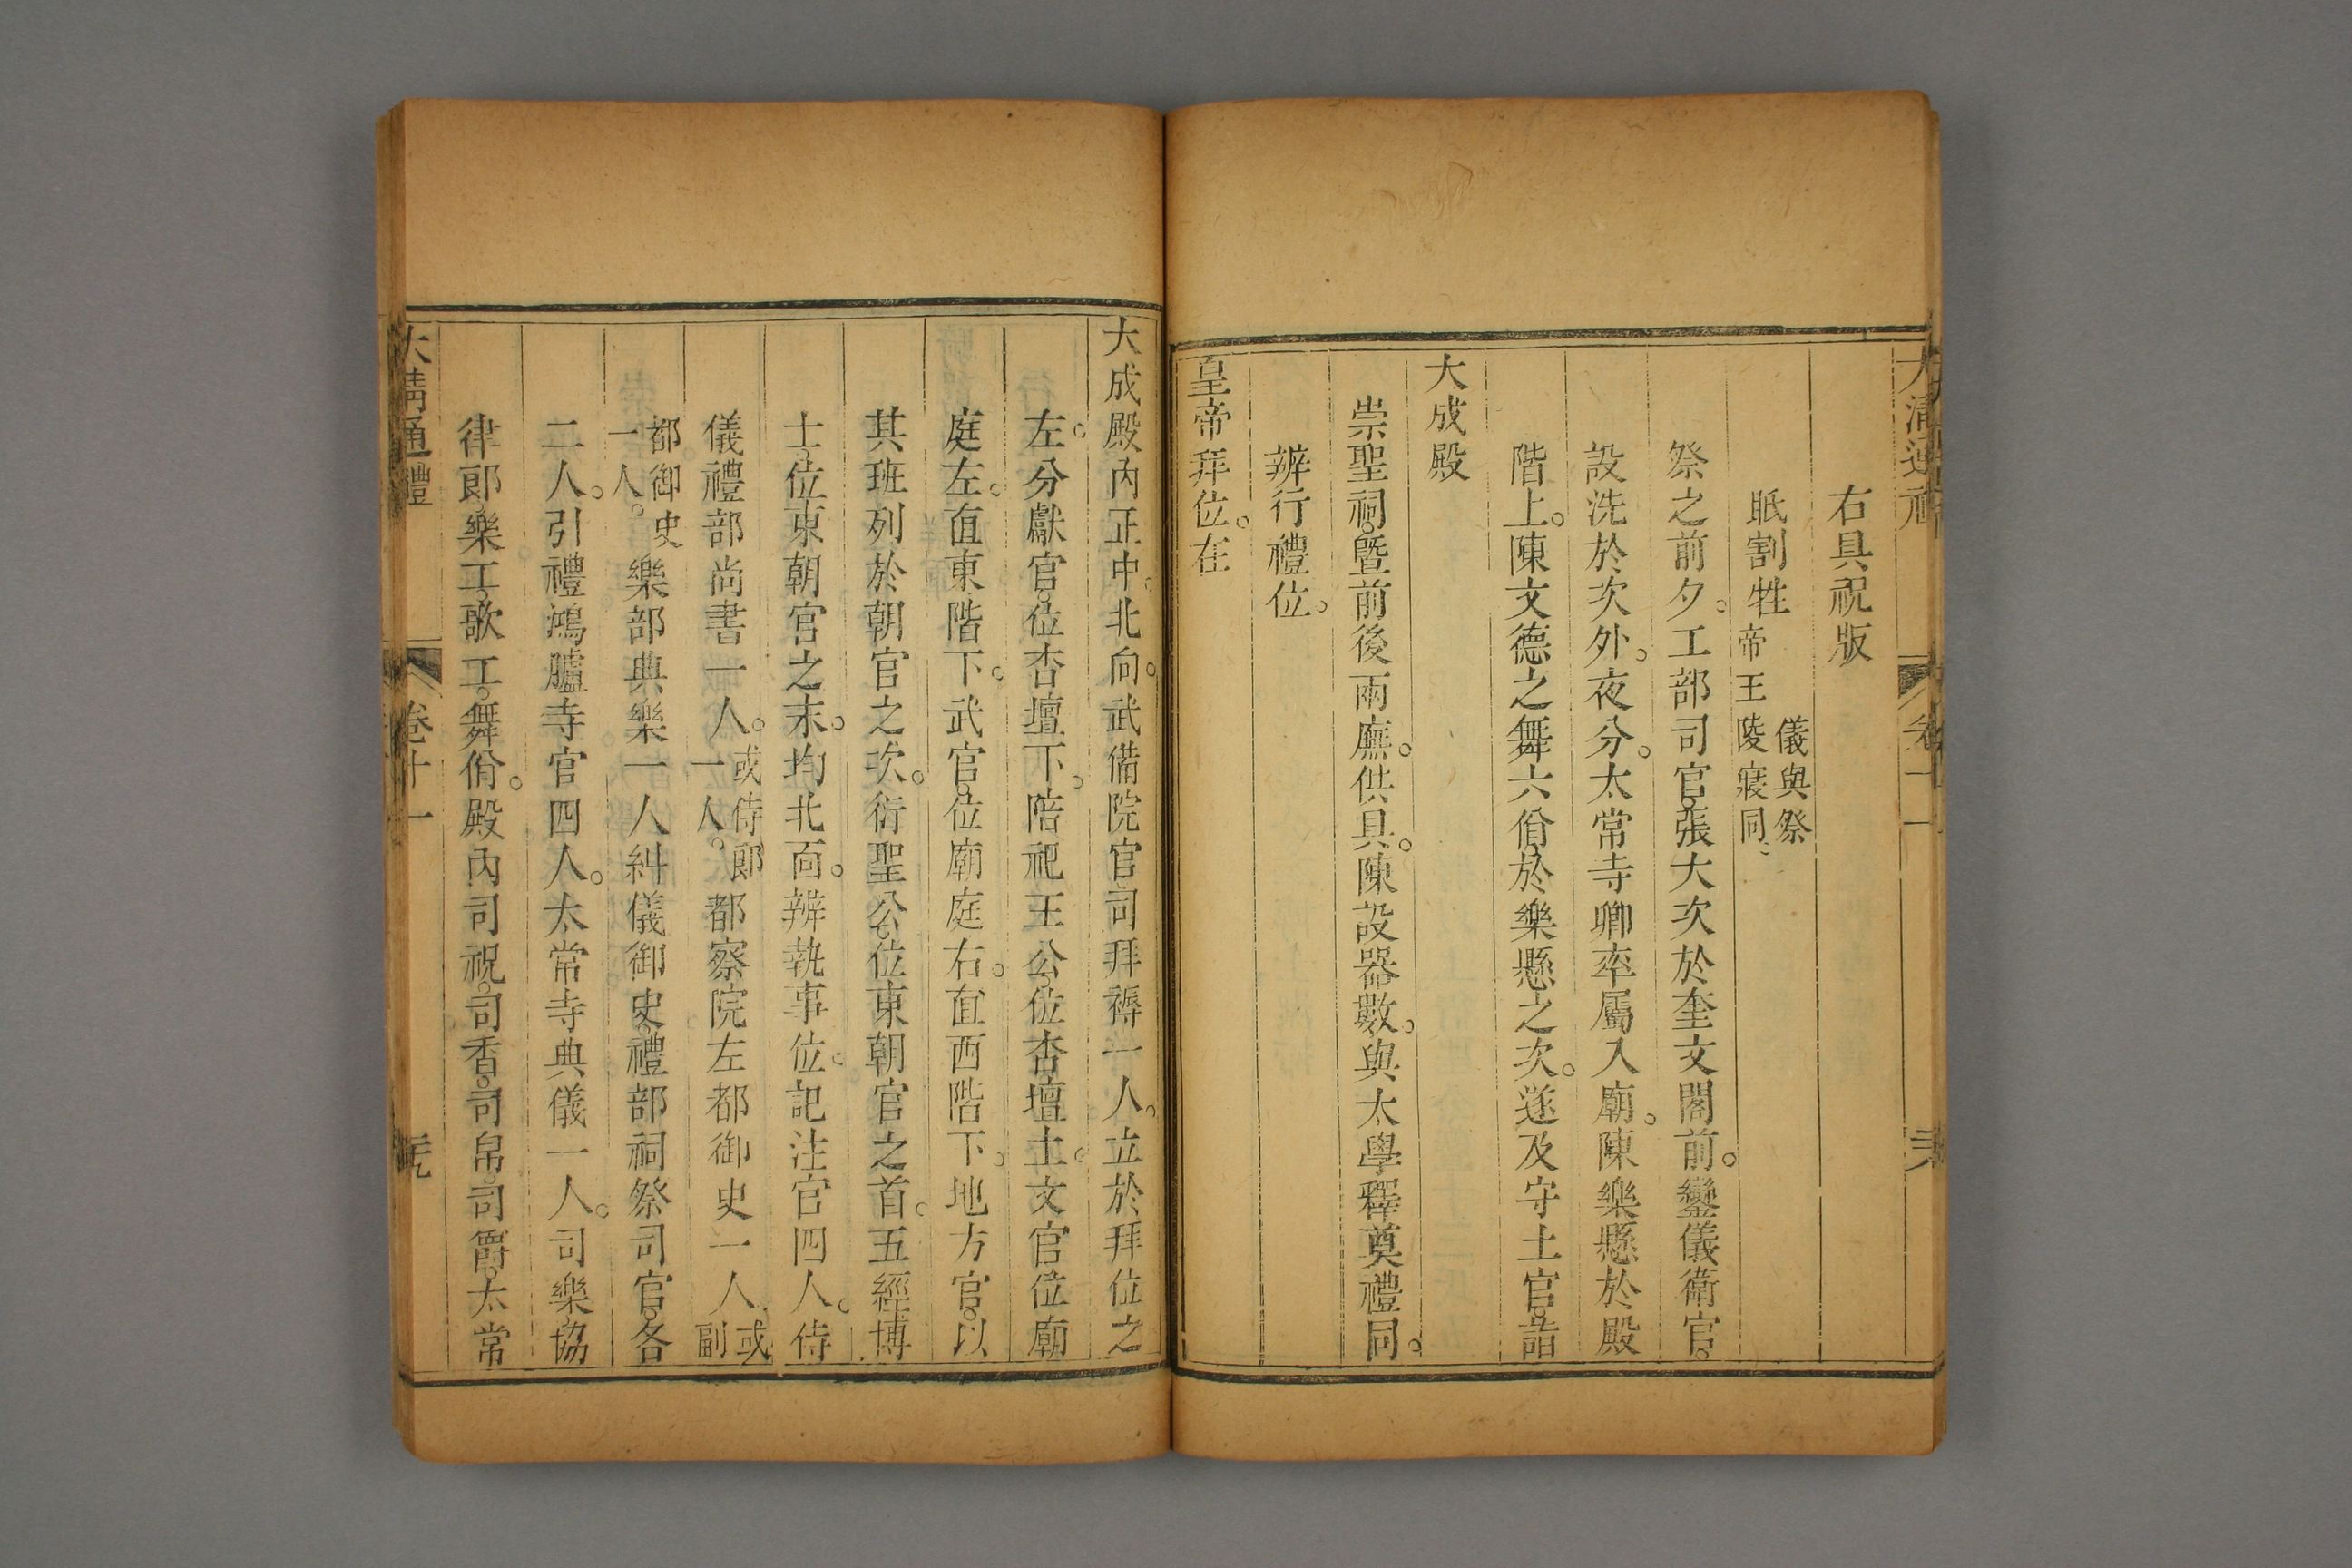 右具祝版
眂割牲儀與祭帝王陵寢同
祭之前夕。工部司官。張大次於奎文閣前。鑾儀衛官。
設洗於次外。夜分。太常寺卿率屬入廟。陳樂懸於殿
階上。陳文德之舞六佾於樂懸之次。遂及守土官。詣
大成殿
崇聖祠。曁前後兩廡。供具。陳設器數。與太學釋奠禮同。
辨行禮位。
皇帝拜位。在
大成殿內正中。北向。武備院官司拜褥一人。立於拜位之
左。分獻官。位杏壇下。陪祀王公。位杏壇上。文官位廟
庭左。直東階下。武官。位廟庭右。直西階下。地方官。以
其班列於朝官之次。衍聖公。位東朝官之首。五經博
士。位東朝官之末。均北面。辨執事位。記注官四人。侍
儀禮部尚書一人。或侍郎一人。都察院左都御史一人或副
都御史一人。樂部典樂一人糾儀御史。禮部祠祭司官。各
二人。引禮鴻臚寺官四人。太常寺典儀一人。司樂。協
律郎。樂工。歌工。舞佾。殿內司祝。司香。司帛。司爵。太常
大清通禮 卷十一